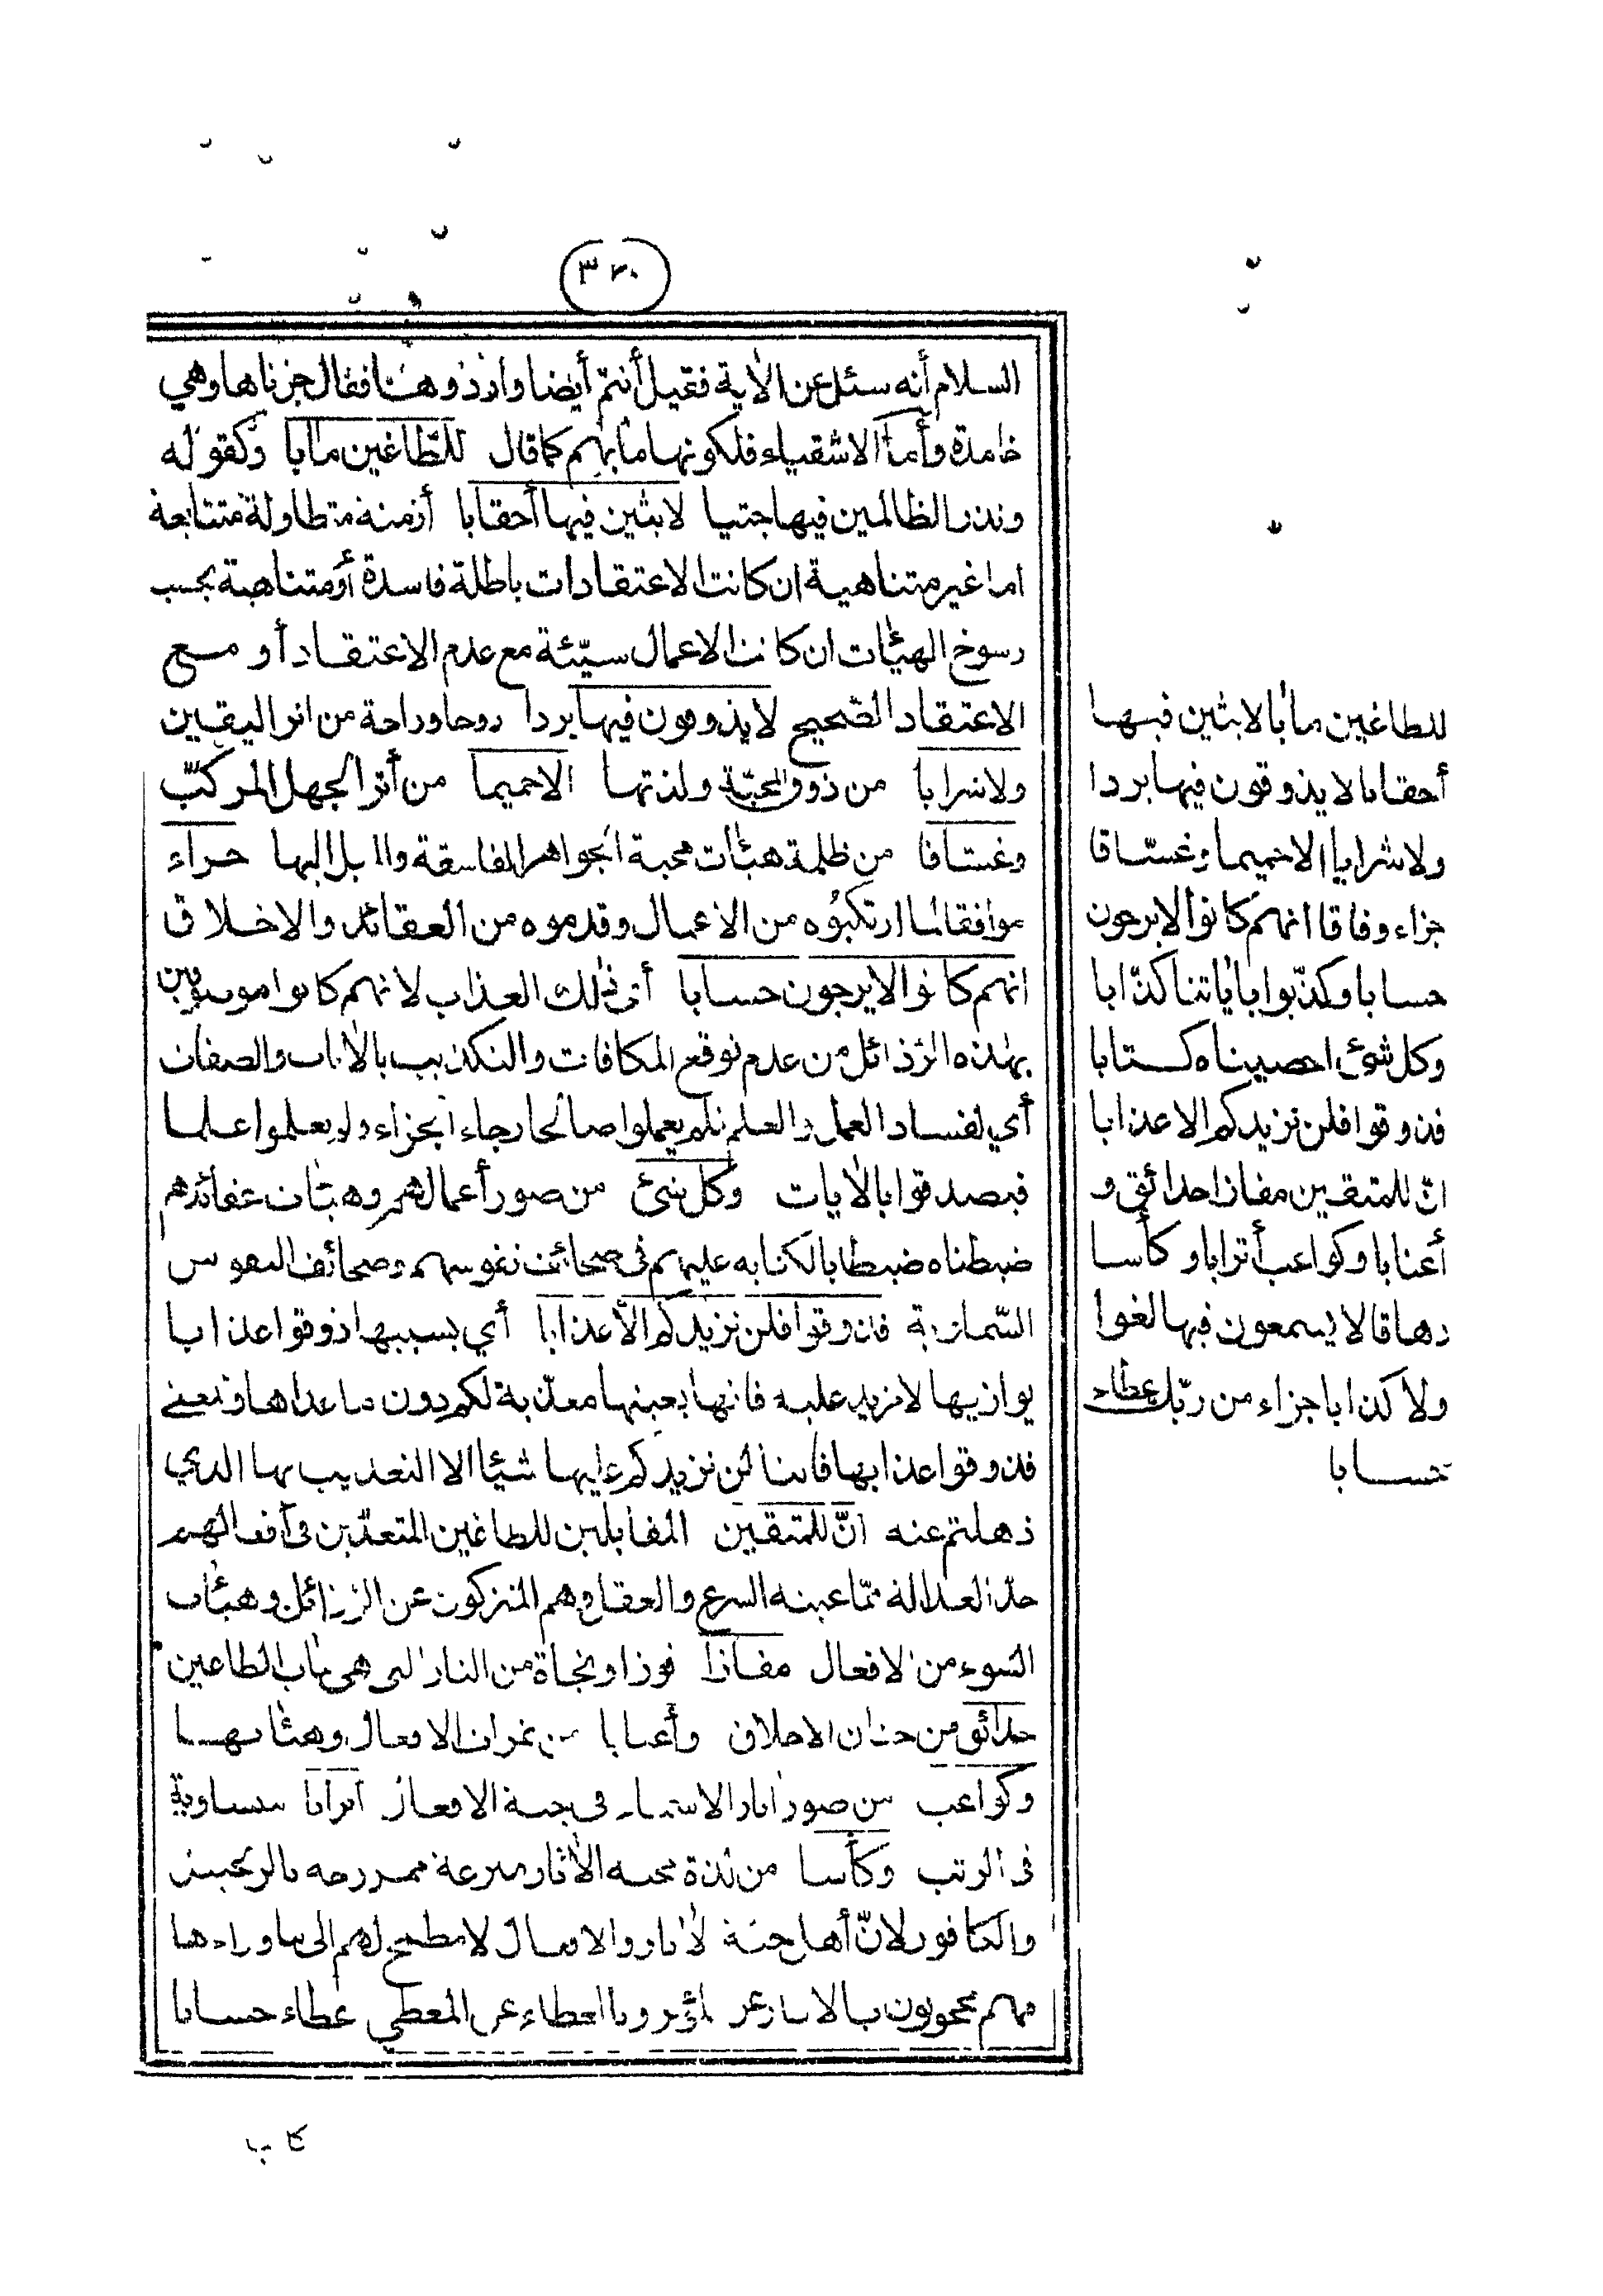 ٣٣٠
السلام أنه سئل عن الآية فقيل أنتم أيضا واردوها فقال جزناها وهي
خامدة وأما الاشقياء فلكونها مآبهم كما قال للطّاغين مآبا وكقوله
ونذر الظالمين فيها جثيا لابثين فيها أحقابا أزمنة متطاولة متتابعة
اما غير متناهية ان كانت الاعتقادات باطلة فاسدة أومتناهية بحسب
رسوخ الهيئات ان كانت الاعمال سيّئة مع عدم الاعتقاد أو مع
الاعتقاد الصّحيح لا يذوقون فيها بردا روحا وراحة من اثر اليقين
ولا شرابا من ذوق المحبّة ولذتها الا حميما من أثر الجهل المركبّ
وغسّاقا من ظلمة هيئات محبة الجواهر الفاسقة والميل اليها جزاء
موافقا لما ارتكبوه من الاعمال وقدموه من العقائد والاخلاق
انهم كانوا لا يرجون حسابا أى ذلك العذاب لانهم كانوا موصوفين
بهذه الرذائل من عدم توقع المكافات والتكذيب بالآيات والصفات
أي لفساد العمل والعلم فلم يعملوا صالحا رجاء الجزاء ولم يعلموا علما
فيصدقوا بالآيات وكل شئ من صور أعمالهم وهيئات عقائدهم
ضبطناه ضبطا بالكتابه عليهم فى صحائف نفوسهم وصحائف النفوس
السّماوية فذوقوا فلن نزيدكم الّا عذابا أي بسببها ذوقوا عذابا
يوازيها لا مزيد عليه فانها بعينها معذّبة لكم دون ما عداها والمعنى
فذوقوا عذابها فاننا لن نزيدكم عليها شيئا الا التعذيب بها الذي
ذهلتم عنه انّ للمتقين المقابلين للطاغين المتعدّين فى أفعالهم
حدّ العدالة ممّا عينه الشرع والعقل وهم المتزكون عن الرذائل وهيئات
السّوء من الافعال مفازا فوزا ونجاة من النار التى هى مآب الطاغين
حدائق من جنان الاخلاق وأعنابا من ثمرات الافعال وهيئاتها
وكواعب من صور آثار الاسماء فى جنة الافعال اترابا متساوية
فى الرتب وكأسا من لذة محبة الآثار مترعة ممزوجه بالزنجبيل
والكافور لانّ أهل جنة الآثار والافعال لا مطمح لهم الى ما وراءها
فهم محجوبون بالآثار عن المؤثر وبالعطاء عن المعطي عطاء حسابا
للطاغين مآبا لابثين فيها
أحقابا لا يذوقون فيها بردا
ولا شرابا الا حميما وغسّاقا
جزاء وفاقا انهم كانوا لا يرجون
حسابا وكذّبوا بآياتنا كذّابا
وكل شئ احصيناه كتابا
فذوقوا فلن نزيدكم الا عذابا
انّ للمتقين مفازا حدائق و
أعنابا وكواعب أترابا وكأسا
دهاقا لا يسمعون فيها لغوا
ولا كذابا جزاء من ربّك عطاء
حسابا